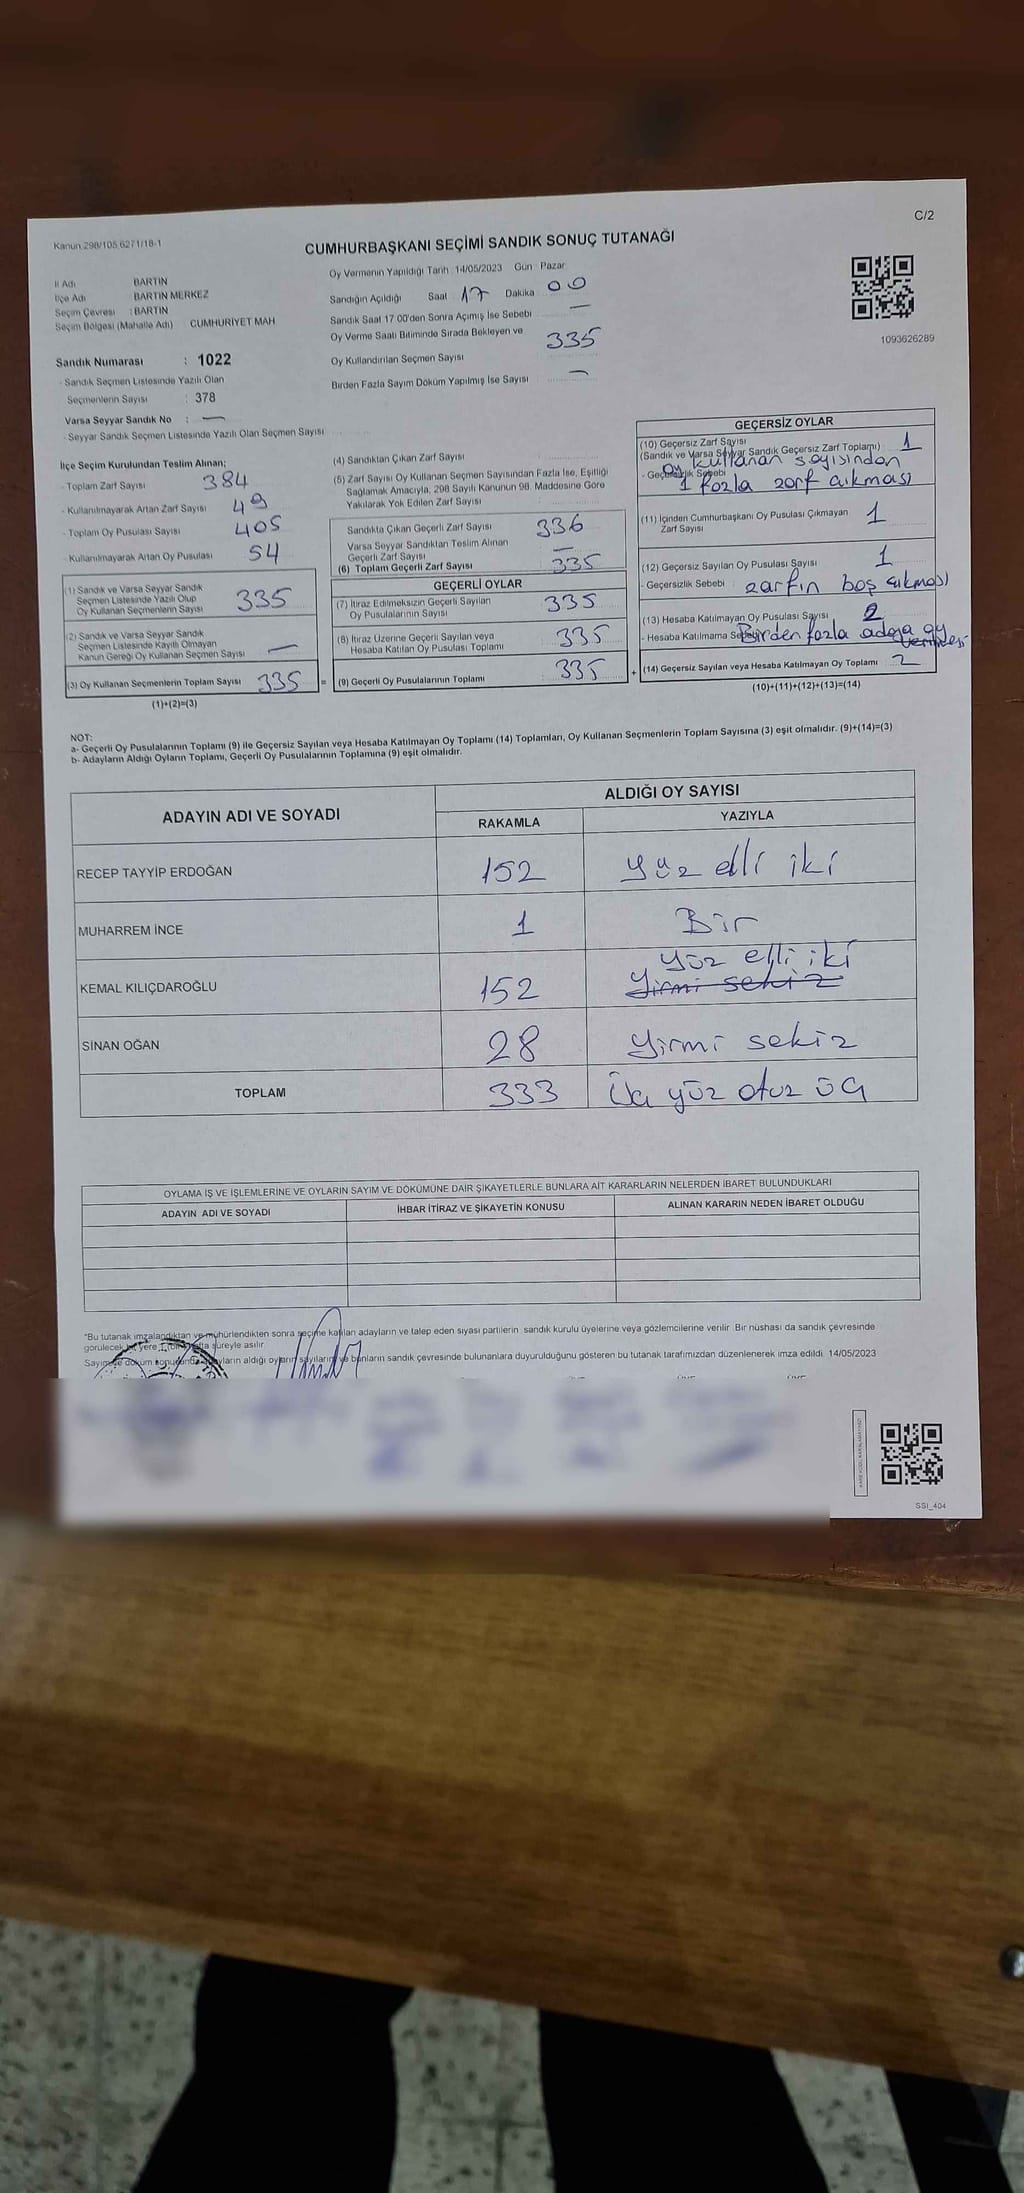 C/2
Kanun 298/105,6271/18-1
CUMHURBAŞKANI SEÇİMİ SANDIK SONUÇ TUTANAĞI
İl Adı BARTIN
İlçe Adı BARTIN MERKEZ
Seçim Çevresi : BARTIN
Seçim Bölgesi (Mahalle Adı) CUMHURİYET MAH
Sandık Numarası : 1022
- Sandık Seçmen Listesinde Yazılı Olan
Seçmenlerin Sayısı : 378
Varsa Seyyar Sandık No : —
- Seyyar Sandık Seçmen Listesinde Yazılı Olan Seçmen Sayısı
Oy Vermenin Yapıldığı Tarih 14/05/2023 Gün Pazar
Sandığın Açıldığı Saat 17 Dakika 00
Sandık Saat 17:00'den Sonra Açımış İse Sebebi —
Oy Verme Saati Bitiminde Sırada Bekleyen ve
Oy Kullandırılan Seçmen Sayısı 335
Birden Fazla Sayım Döküm Yapılmış İse Sayısı —
1093626289
İlçe Seçim Kurulundan Teslim Alınan:
- Toplam Zarf Sayısı 384
- Kullanılmayarak Artan Zarf Sayısı 49
- Toplam Oy Pusulası Sayısı 405
- Kullanılmayarak Artan Oy Pusulası 54
(1) Sandık ve Varsa Seyyar Sandık
Seçmen Listesinde Yazılı Olup
Oy Kullanan Seçmenlerin Sayısı 335
(2) Sandık ve Varsa Seyyar Sandık
Seçmen Listesinde Kayıtlı Olmayan
Kanun Gereği Oy Kullanan Seçmen Sayısı —
(3) Oy Kullanan Seçmenlerin Toplam Sayısı 335 =
(1)+(2)=(3)
(4) Sandıktan Çıkan Zarf Sayısı
(5) Zarf Sayısı Oy Kullanan Seçmen Sayısından Fazla İse, Eşitliği
Sağlamak Amacıyla, 298 Sayılı Kanunun 98. Maddesine Göre
Yakılarak Yok Edilen Zarf Sayısı
Sandıkta Çıkan Geçerli Zarf Sayısı 336
Varsa Seyyar Sandıktan Teslim Alınan
Geçerli Zarf Sayısı —
(6) Toplam Geçerli Zarf Sayısı 335
GEÇERLİ OYLAR
(7) İtiraz Edilmeksizin Geçerli Sayılan
Oy Pusulalarının Sayısı 335
(8) İtiraz Üzerine Geçerli Sayılan veya
Hesaba Katılan Oy Pusulası Toplamı 335
(9) Geçerli Oy Pusulalarının Toplamı 335 +
GEÇERSİZ OYLAR
(10) Geçersiz Zarf Sayısı
(Sandık ve Varsa Seyyar Sandık Geçersiz Zarf Toplamı) 1
- Geçersizlik Sebebi oy kullanan sayısından
1 fazla zarf çıkması
(11) İçinden Cumhurbaşkanı Oy Pusulası Çıkmayan
Zarf Sayısı 1
(12) Geçersiz Sayılan Oy Pusulası Sayısı 1
- Geçersizlik Sebebi : zarfın boş çıkması
(13) Hesaba Katılmayan Oy Pusulası Sayısı 2
- Hesaba Katılmama Sebebi Birden fazla adaya oy
verilmesi
(14) Geçersiz Sayılan veya Hesaba Katılmayan Oy Toplamı 2
(10)+(11)+(12)+(13)=(14)
NOT:
a- Geçerli Oy Pusulalarının Toplamı (9) ile Geçersiz Sayılan veya Hesaba Katılmayan Oy Toplamı (14) Toplamları, Oy Kullanan Seçmenlerin Toplam Sayısına (3) eşit olmalıdır. (9)+(14)=(3)
b- Adayların Aldığı Oyların Toplamı, Geçerli Oy Pusulalarının Toplamına (9) eşit olmalıdır.
ADAYIN ADI VE SOYADI
ALDIĞI OY SAYISI
RAKAMLA YAZIYLA
RECEP TAYYİP ERDOĞAN 152 Yüz elli iki
MUHARREM İNCE 1 Bir
KEMAL KILIÇDAROĞLU 152 Yüz elli iki
Yirmi sekiz
SİNAN OĞAN 28 Yirmi sekiz
TOPLAM 333 Üç yüz otuz üç
OYLAMA İŞ VE İŞLEMLERİNE VE OYLARIN SAYIM VE DÖKÜMÜNE DAİR ŞİKAYETLERLE BUNLARA AİT KARARLARIN NELERDEN İBARET BULUNDUKLARI
ADAYIN ADI VE SOYADI İHBAR İTİRAZ VE ŞİKAYETİN KONUSU ALINAN KARARIN NEDEN İBARET OLDUĞU
*Bu tutanak imzalandıktan ve mühürlendikten sonra seçime katılan adayların ve talep eden siyasi partilerin sandık kurulu üyelerine veya gözlemcilerine verilir. Bir nüshası da sandık çevresinde
görülecek bir yere süreyle asılır.
Sayım ve döküm sonucunda adayların aldığı oyların sayılarını ve bunların sandık çevresinde bulunanlara duyurulduğunu gösteren bu tutanak tarafımızdan düzenlenerek imza edildi. 14/05/2023
SSİ_404